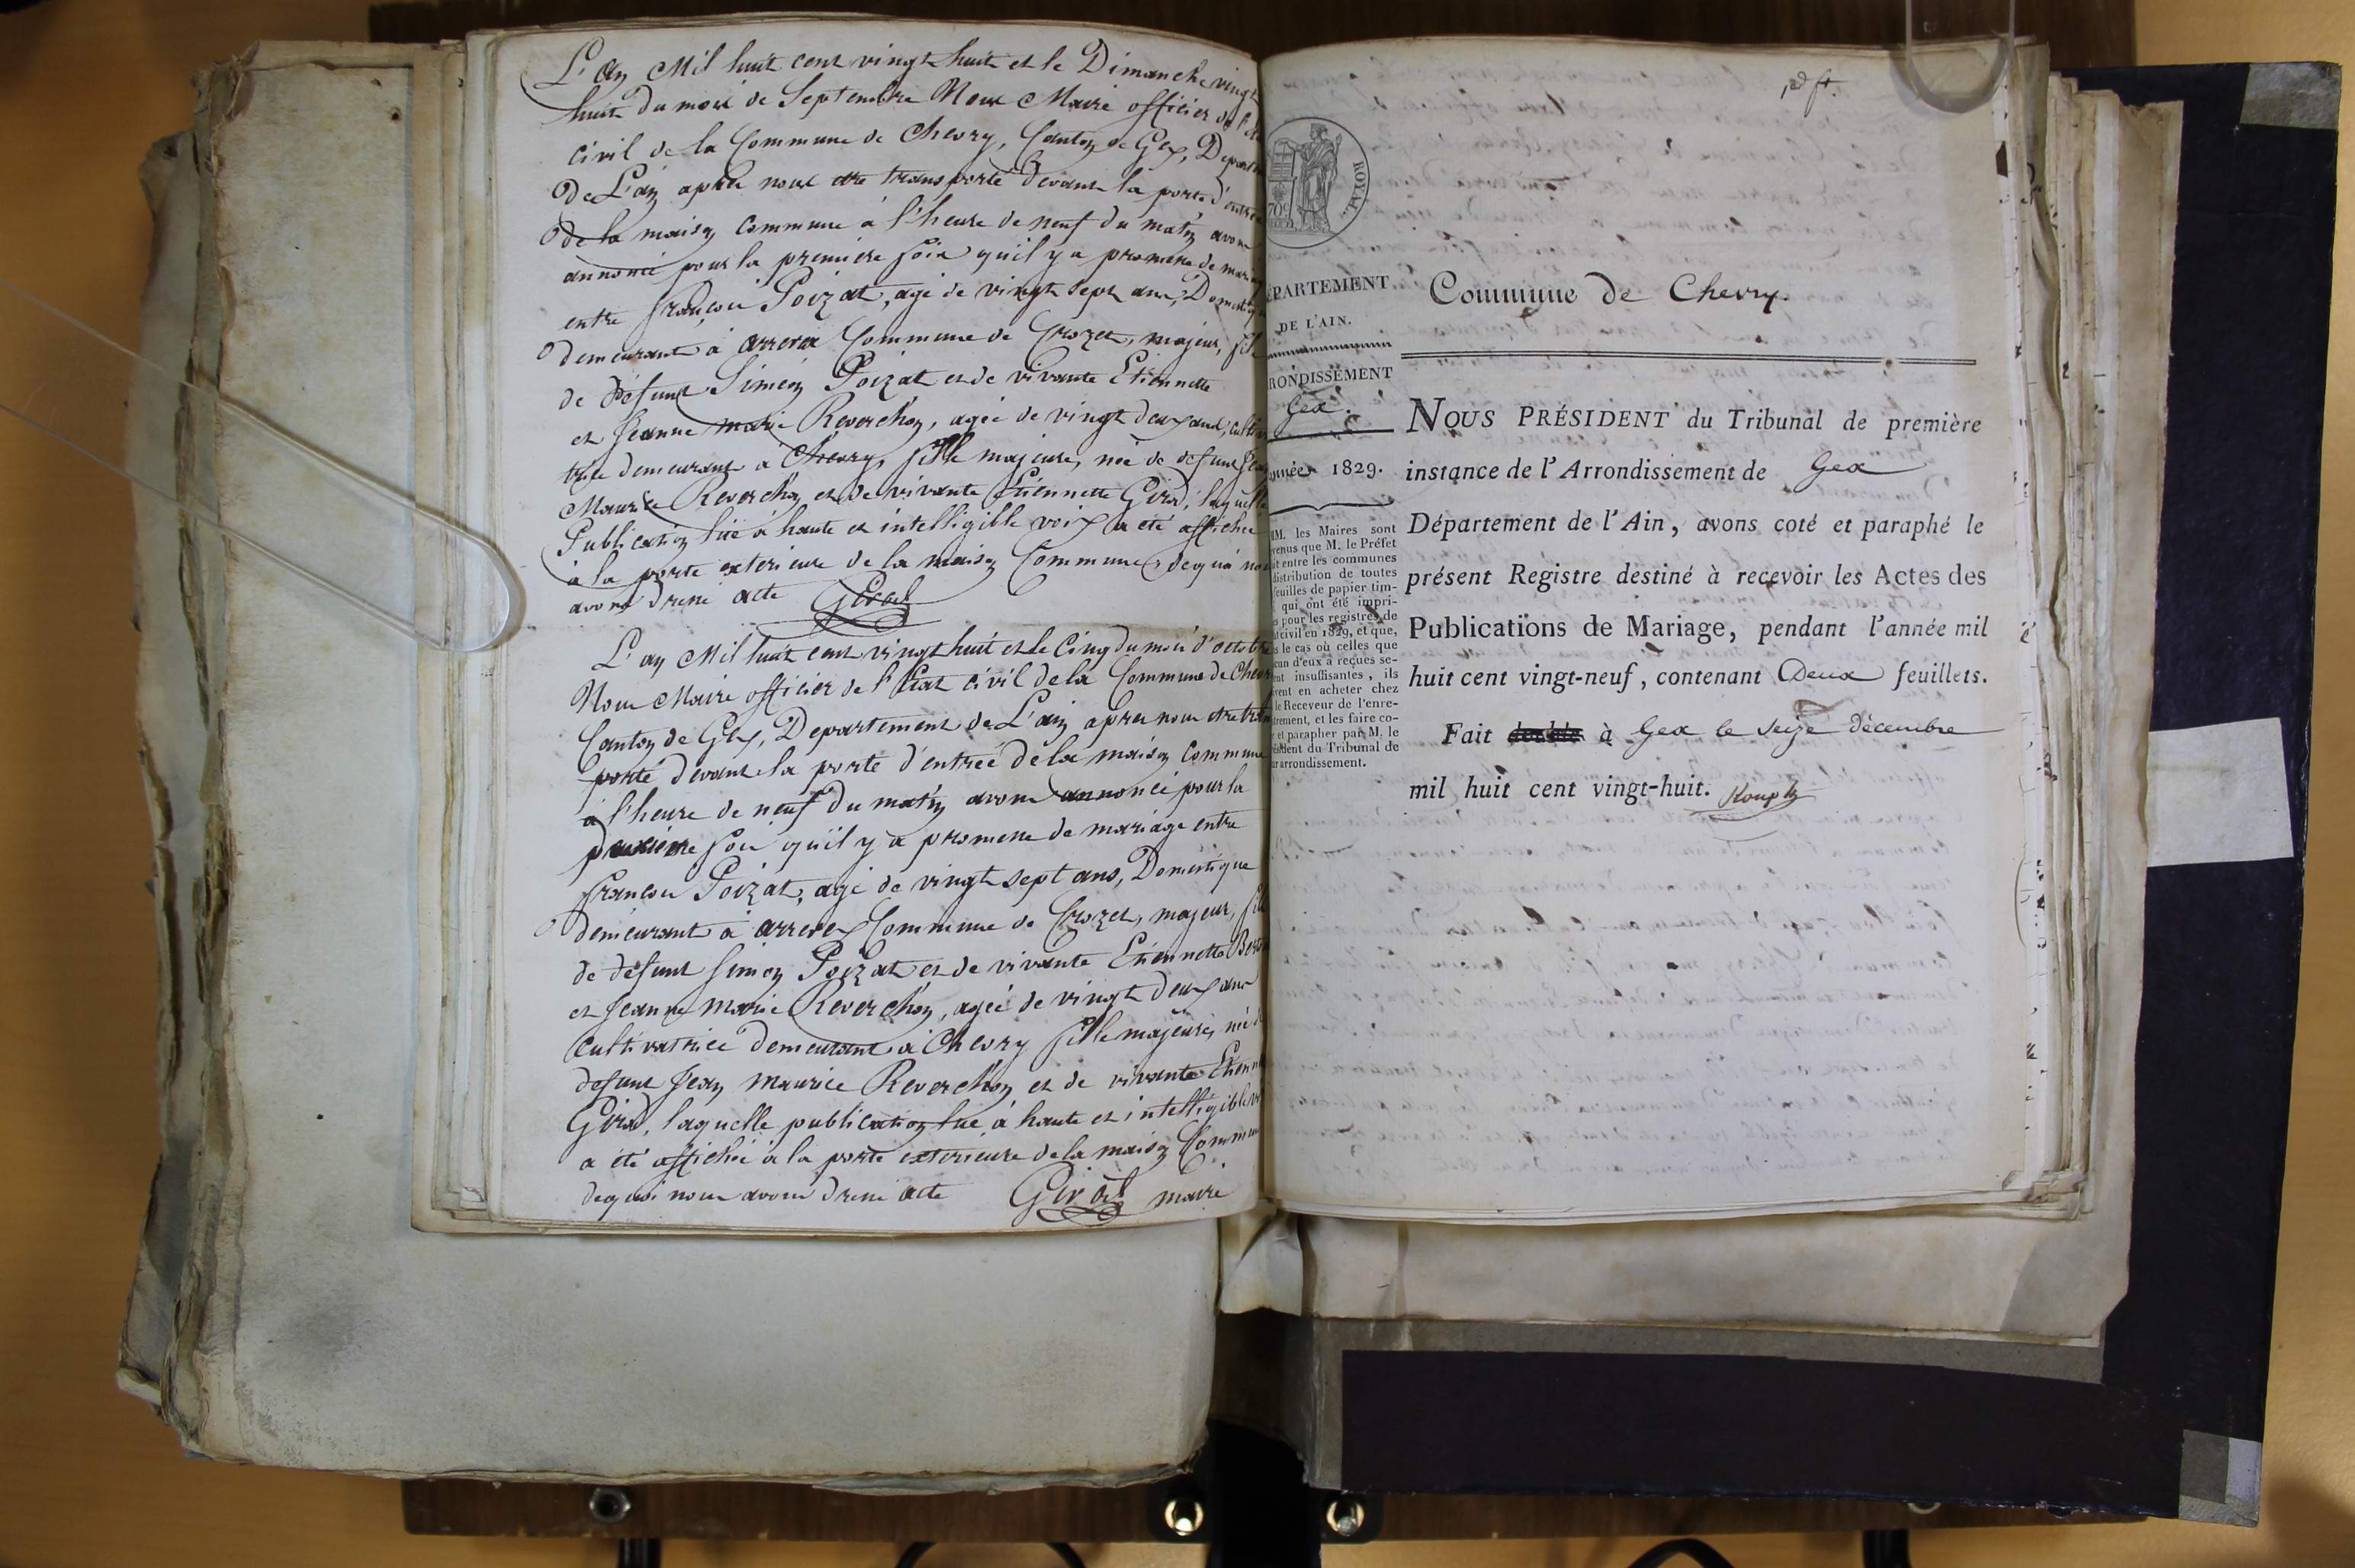 L'an Mil huit cent vingt huit et le Dimanche vingt
huit du mois de Septembre Nous Maire officier de l'
civil de la Commune de Chevry, Canton de Gex, Depart
De L'ain après nous etre transporté devant la porte d'entrée
de la maison Commune à l'heure de neuf du matin avons
annoncé pour la premiere fois qu'il y a promesse de mari
entre françois Poizat, agé de vingt sept ans, Domestiq
demeurant à arrerex Commune de Crozet, majeur, fils
de défunt Siméon Poizat et de vivante Etiennette
et Jeanne marie Reverchon, agée de vingt deux ans, cultiva
trice demeurant à Chevry, fille majeure, née de defunt Jean
Maurice Reverchon et de vivante Etiennette Girod, laquelle
Publication lue à haute et intelligible voix a été affichée
à la porte exterieure de la maison Commune, dequoi nous
avons dressé acte Girod
L'an Mil huit cent vingt huit et le Cinq du mois d'octobre
Nous Maire officier de l'Etat civil de la Commune de Chevr
Canton de Gex, Departement de L'ain après nous etre trans
porté devant la porte d'entrée de la maison Commune
à l'heure de neuf du matin avons annoncé pour la
deuxième fois qu'il y a promesse de mariage entre
françois Poizat, agé de vingt sept ans, Domestique
demeurant à arrerex Commune de Crozet, majeur, fils
de défunt Simeon Poizat et de vivante Etiennette
et Jeanne Marie Reverchon, agée de vingt deux ans
Cultivatrice demeurant à Chevry fille majeure, née de
defunt Jean Maurice Reverchon et de vivante Etienn
Girod, laquelle publication lue à haute et intelligible
a été affichée à la porte exterieure de la maison Commun
dequoi nous avons dressé acte Girod maire
ROYAL
ÉPARTEMENT
DE L'AIN.
RONDISSEMENT
Gex.
année 1829.
MM. les Maires sont
venus que M. le Préfet
it entre les communes
distribution de toutes
feuilles de papier tim-
qui ont été impri-
s pour les registres de
tcivil en 1829, et que,
s le cas où celles que
cun d'eux a reçues se-
ent insuffisantes, ils
vent en acheter chez
le Receveur de l'enre-
trement, et les faire co-
r et parapher par M. le
ésident du Tribunal de
ur arrondissement.
Commune de Chevry.
NOUS PRÉSIDENT du Tribunal de première
instance de l'Arrondissement de Gex
Département de l'Ain, avons coté et paraphé le
présent Registre destiné à recevoir les Actes des
Publications de Mariage, pendant l'année mil
huit cent vingt-neuf, contenant Deux feuillets.
Fait double à Gex le seize décembre
mil huit cent vingt-huit.